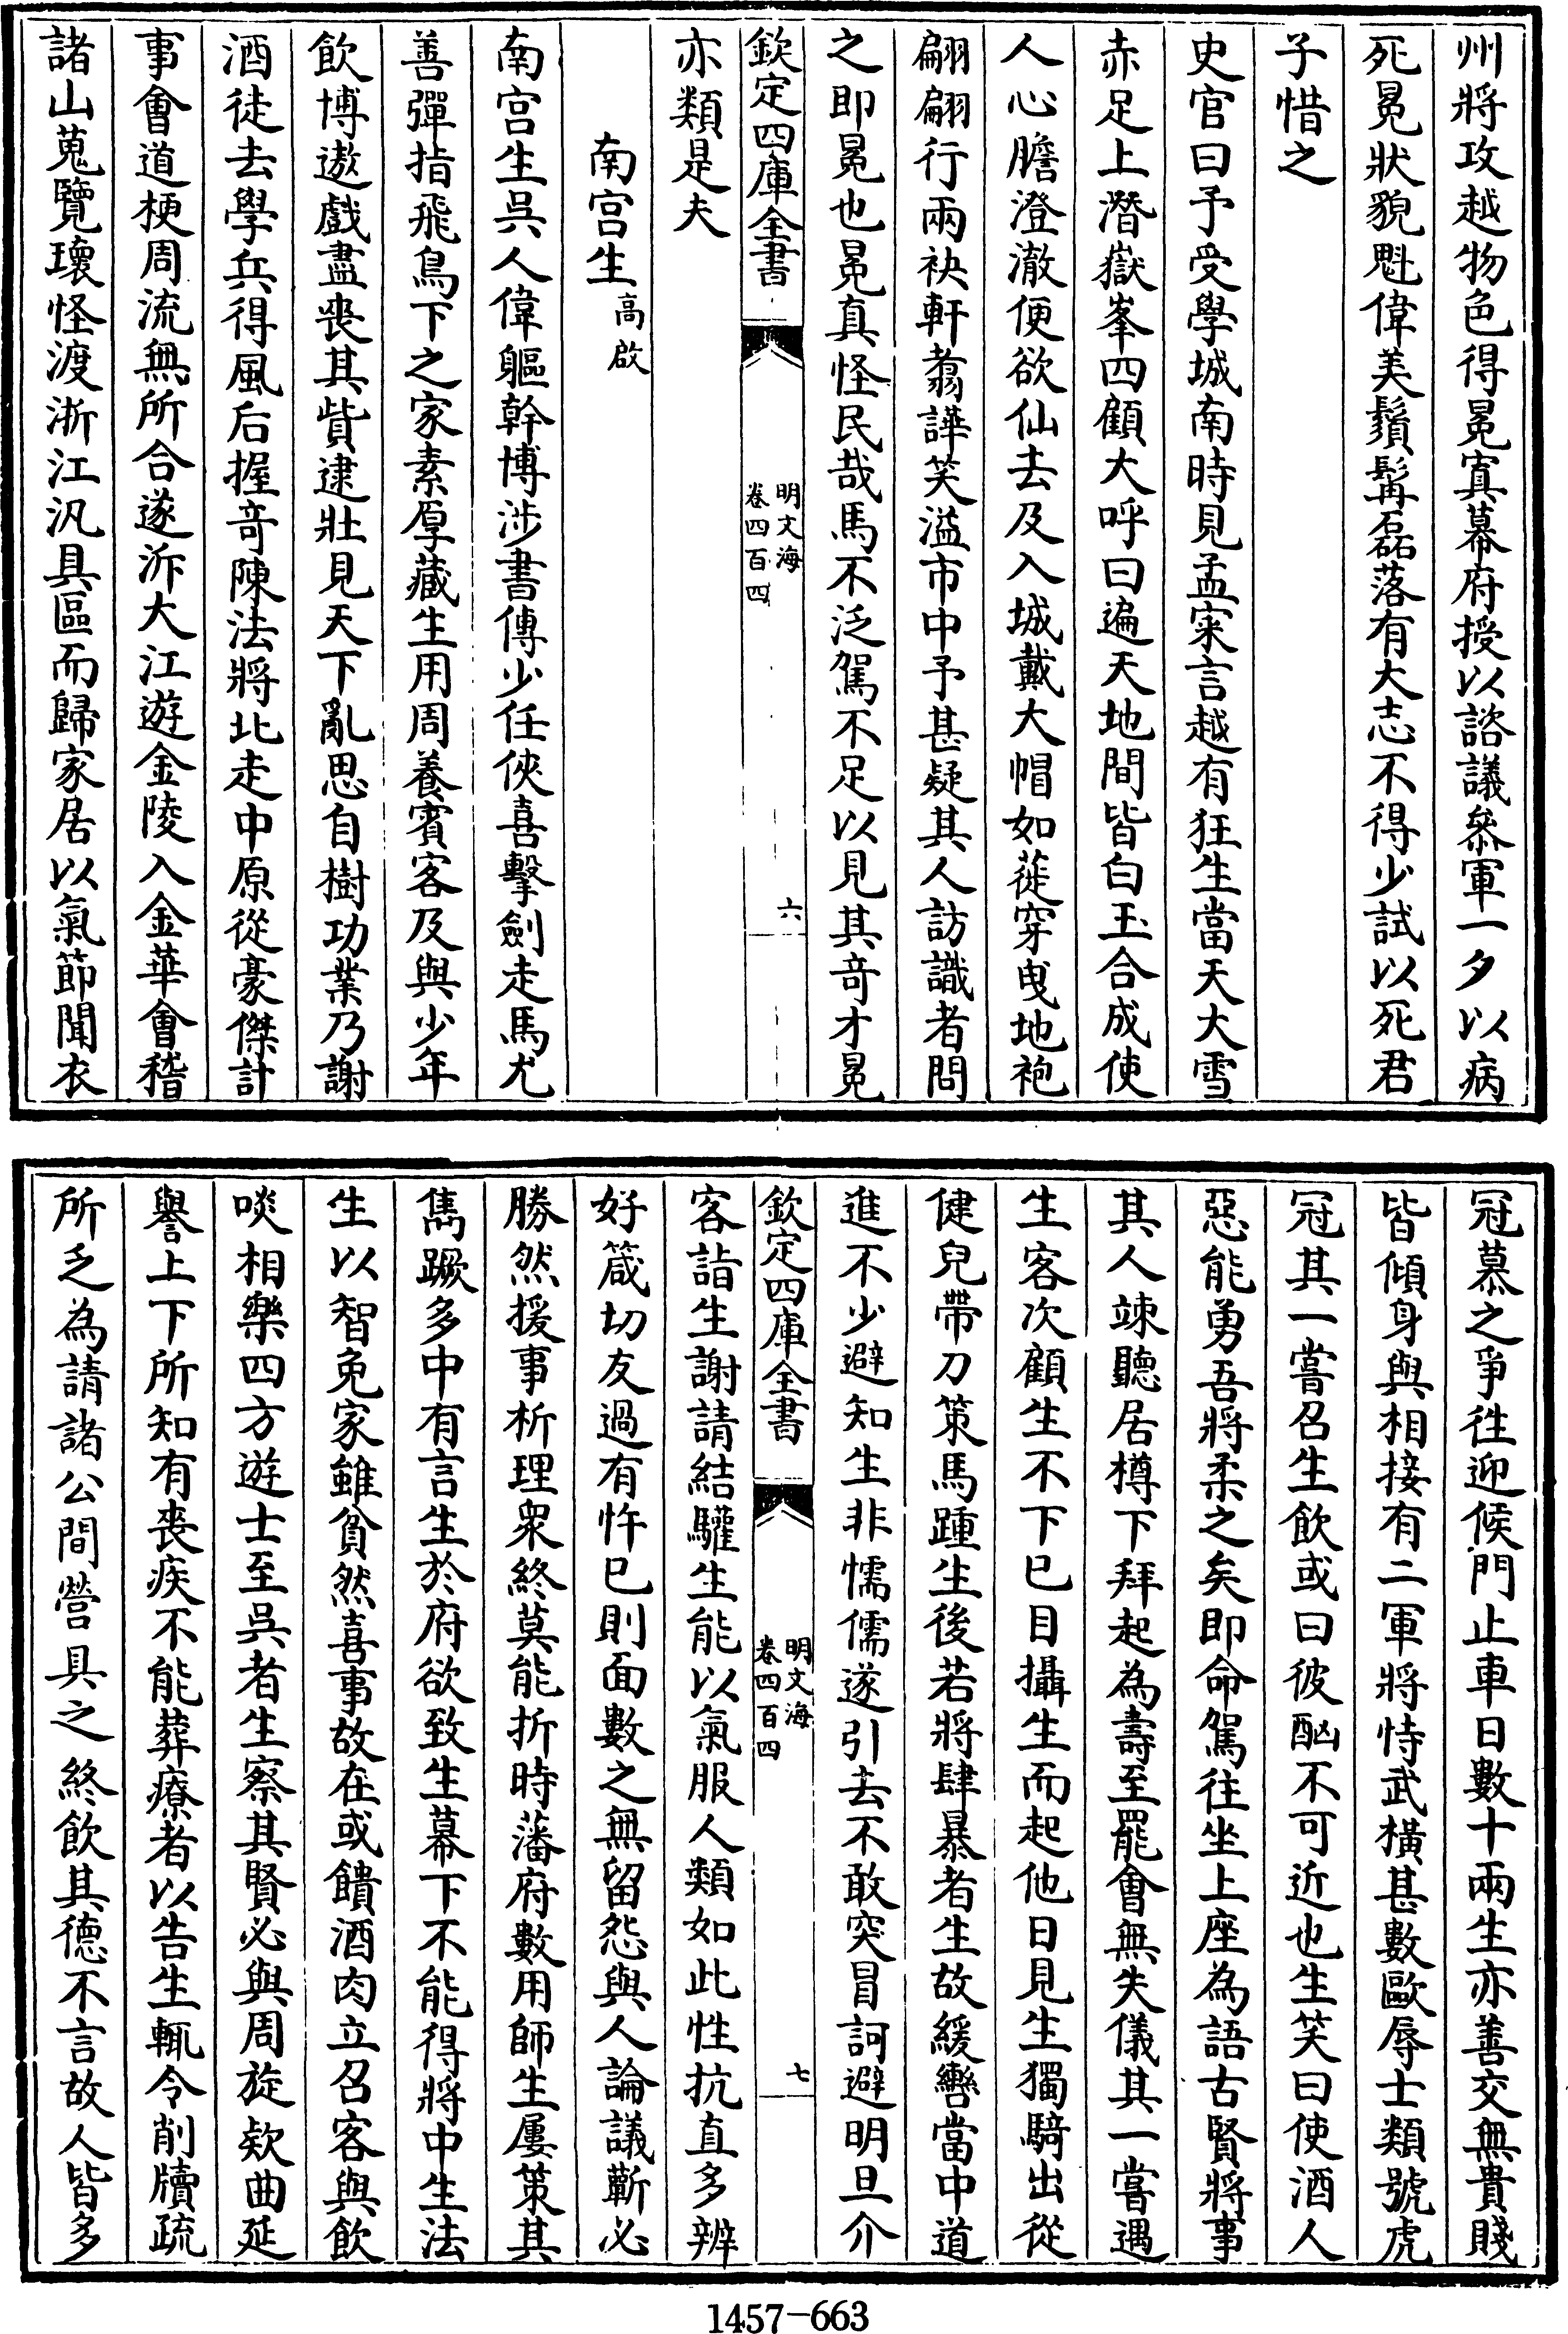 州將攻越物色得冕寘幕府授以諮議叅軍一夕以病
死冕狀貌魁偉美鬚髯磊落有大志不得少試以死君
子惜之
史官曰予受學城南時見孟寀言越有狂生當天大雪
赤足上潛嶽峯四顧大呼曰遍天地間皆白玉合成使
人心膽澄澈便欲仙去及入城戴大帽如蓰穿曳地袍
翩翩行兩袂軒翥譁笑溢市中予甚疑其人訪識者問
之即冕也冕真怪民哉馬不泛駕不足以見其竒才冕
欽定四庫全書
明文海
卷四百四
六
亦類是夫
南宫生高啟
南宫生吳人偉軀幹博涉書傳少任俠喜擊劍走馬尤
善彈指飛鳥下之家素厚藏生用周養賓客及與少年
飲博遨戲盡喪其貲逮壯見天下亂思自樹功業乃謝
酒徒去學兵得風后握竒陳法將北走中原從豪傑計
事會道梗周流無所合遂泝大江遊金陵入金華會稽
諸山蒐覽瓌怪渡浙江汎具區而歸家居以氣節聞衣
冠慕之爭徃迎候門止車日數十兩生亦善交無貴賤
皆傾身與相接有二軍將恃武橫甚數歐辱士類號虎
冠其一嘗召生飲或曰彼酗不可近也生笑曰使酒人
惡能勇吾將柔之矣即命駕往坐上座為語古賢將事
其人竦聽居樽下拜起為壽至罷會無失儀其一嘗遇
生客次顧生不下已目攝生而起他日見生獨騎出從
健兒帶刀策馬踵生後若將肆暴者生故緩轡當中道
進不少避知生非懦儒遂引去不敢突冒訶避明旦介
欽定四庫全書
明文海
卷四百四
七
客詣生謝請結驩生能以氣服人類如此性抗直多辨
好箴切友過有忤已則面數之無留怨與人論議蘄必
勝然援事析理衆終莫能折時藩府數用師生屢策其
雋蹶多中有言生於府欲致生幕下不能得將中生法
生以智免家雖貧然喜事故在或饋酒肉立召客與飲
啖相樂四方遊士至吳者生察其賢必與周旋欵曲延
譽上下所知有喪疾不能葬療者以告生輒令削牘疏
所乏為請諸公間營具之終飲其德不言故人皆多
1457-663